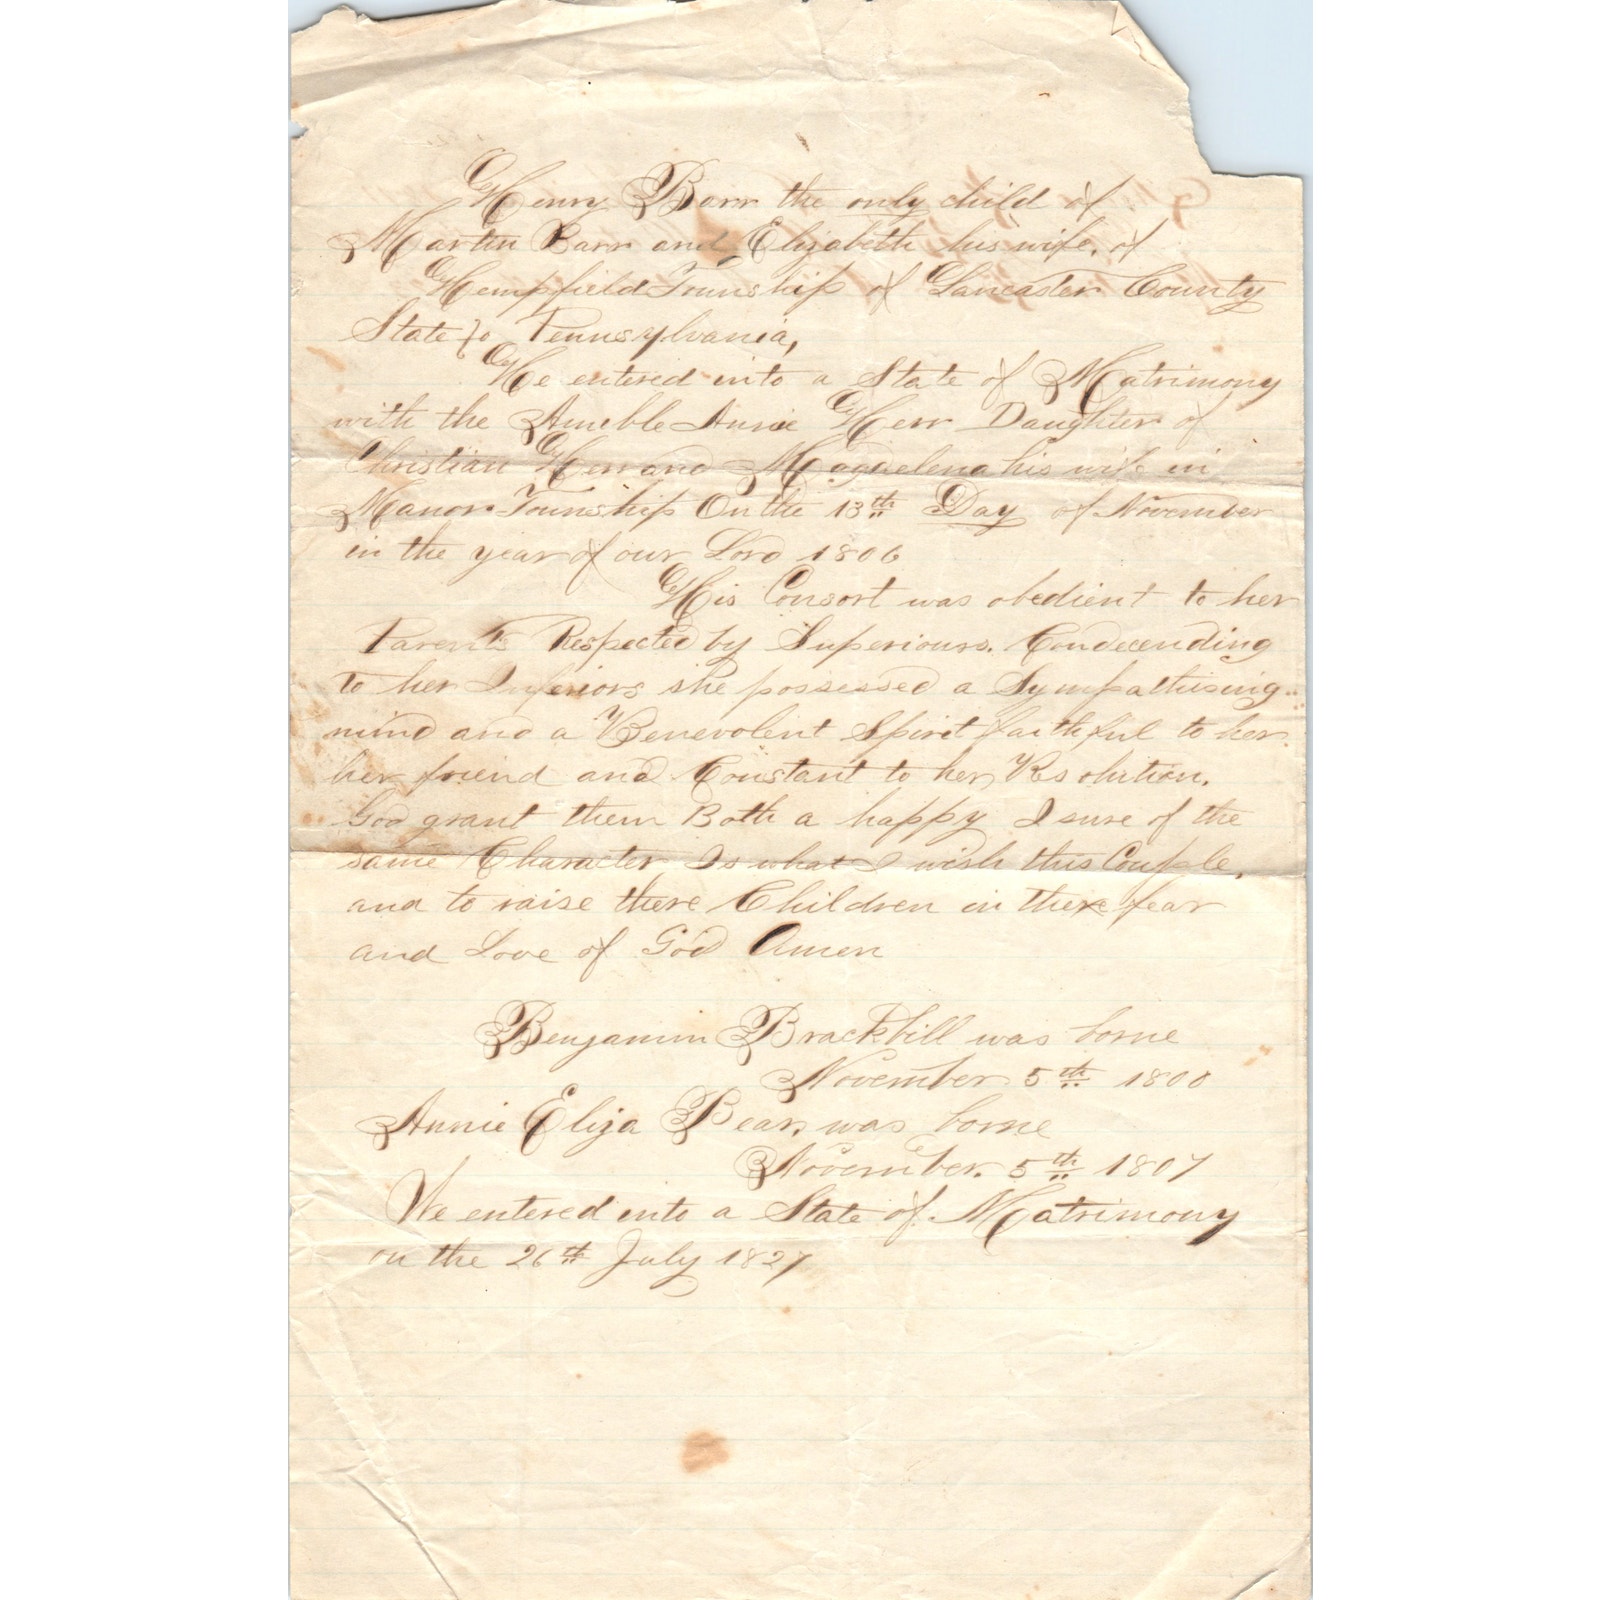 Henry Barr the only child of
Martin Barr and Elizabeth his wife, of
Hempfield Township of Lancaster County
State of Pennsylvania,
He entered into a State of Matrimony
with the Amible Annie Herr Daughter of
Christian Herr and Magdelena his wife in
Manor Township On the 13th Day of November
in the year of our Lord 1806
His Consort was obedient to her
Parents Respected by Superiours. Condecending
to her Inferiors she possessed a Sympathising
mind and a Benevolent Spirit faithful to her
her friend and Constant to her Resolution.
God grant them Both a happy I sure of the
same Character Is what I wish this Couple,
and to raise there Children in the fear
and Love of God Amen
Benjamin Brackbill was borne
November 5th 1800
Annie Eliza Bear, was borne
November. 5th 1807
We entered into a State of Matrimony
on the 26th July 1827